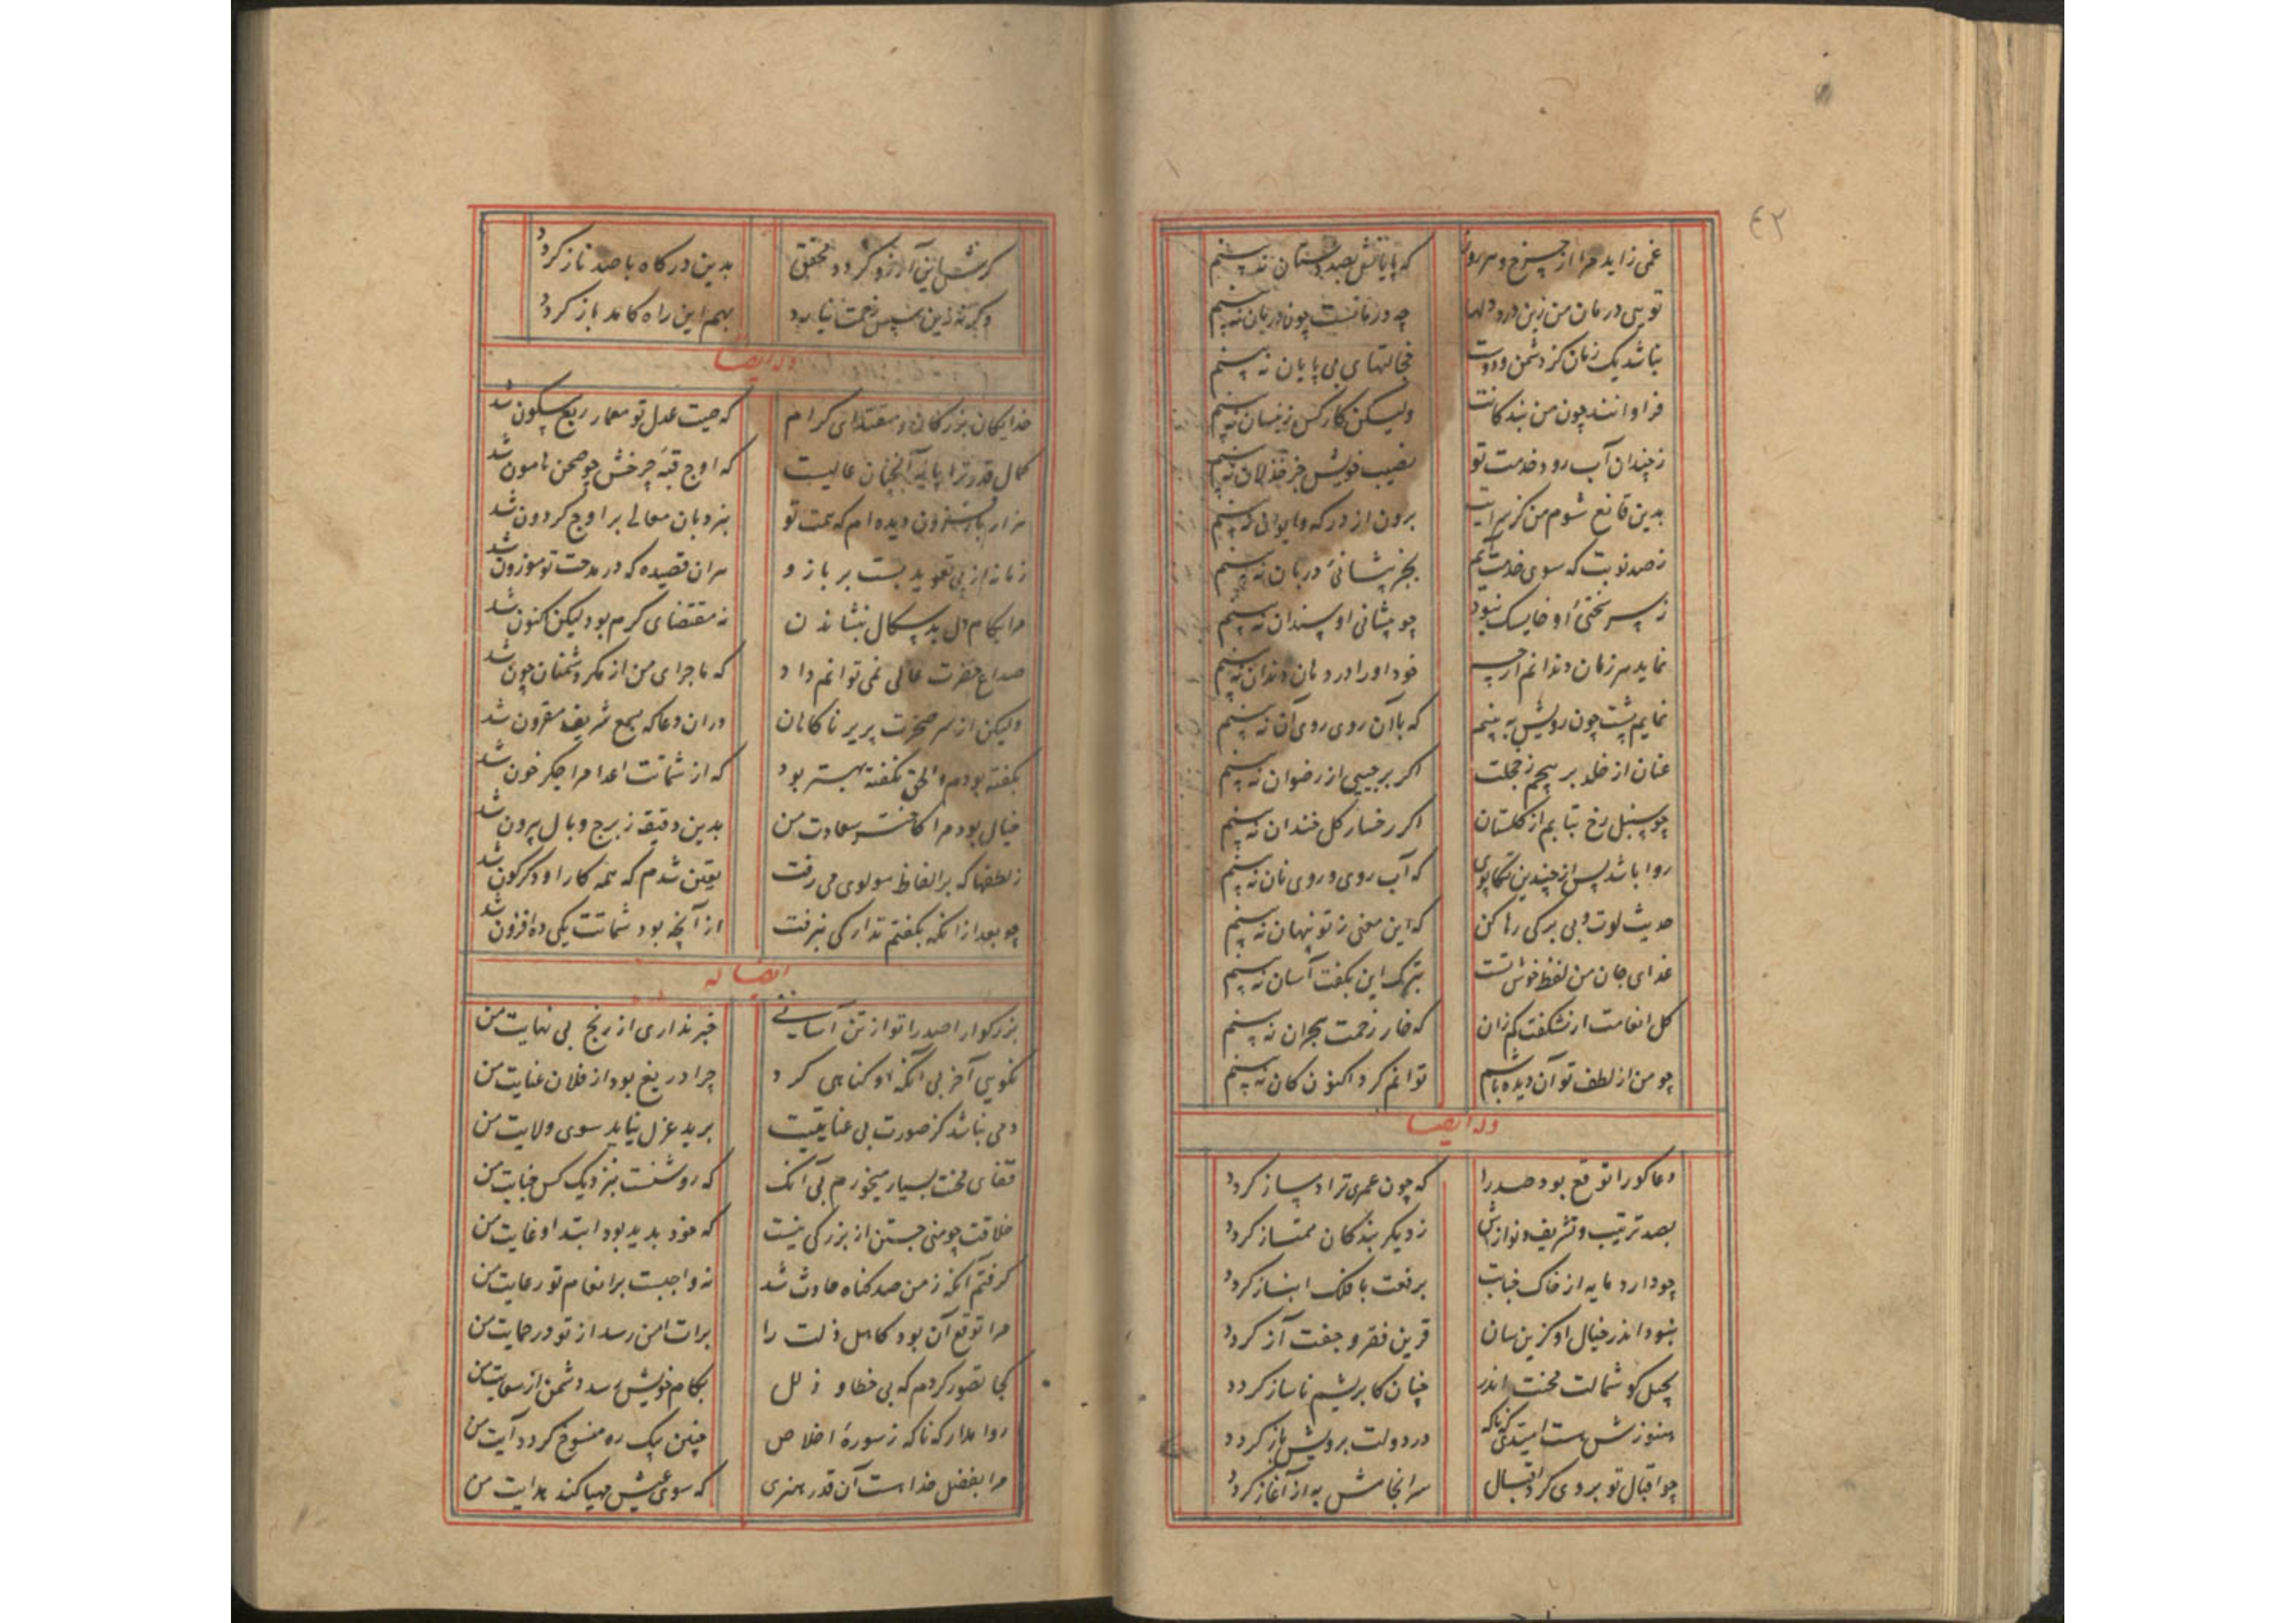 ۴۲
غمی زاید مرا از چرخ و هر روز که پایانش بصد دستان نه بینم
تویی درمان من زین درد دلها چه درمانست چون درمان نه بینم
نباشد یک زمان کز دشمن و دوست خجالتهای بی پایان نه بینم
فراوانند چون من بندکانت ولیکن کار کس زینسان نه بینم
ز چندان آب رو در خدمت تو نصیب خویش جز خذلان نه بینم
بدین قانع شوم من کز سرایت برون از درکه و ایوان نه بینم
ز صد نوبت که سوی خدمت آیم بجز پیشانیٔ دربان نه بینم
ز بس سختیٔ او خایسک نبود چو پیشانی او سندان نه بینم
نماید هر زمان دندانم ارچه خود او را در دهان دندان نه بینم
نمایم پشت چون رویش به بینم که با آن روی روی آن نه بینم
عنان از خلد بر پیچم ز خجلت اکر بر جبینی از رضوان نه بینم
چو سنبل رخ بتابم از کلستان اکر رخسار کل خندان نه بینم
روا باشد پس از چندین تکاپوی که آب روی و روی نان نه بینم
حدیث لوت و بی برکی رها کن که این معنی ز تو پنهان نه بینم
غدای جان من لفظ خوش تست بترک این بکفت آسان نه بینم
کل انعامت ار نشکفت کم زان که خار زحمت هجران نه بینم
چو من از لطف تو آن دیده باشم توانم کرد اکنون کان نه بینم
وله ایضا
دعا کو را توقع بود صدرا که چون عمری ترا دمساز کردد
بصد ترتیب و تشریف و نوازش ز دیکر بندکان ممتاز کردد
چو دارد مایه از خاک جنابت برفعت با فلک انباز کردد
نبود اندر خیال او کزین سان قرین فقر و جفت آز کردد
بچل کو شمالت محنت اندر چنان کابریشم ناساز کردد
هنوزش هست امیدی که ناکه در دولت برویش باز کردد
چو اقبال تو بر وی کرد اقبال سرانجامش به از آغاز کردد
کرش این آرزو کردد محقق بدین درکاه با صد ناز کردد
وکرنه زین سپس زحمت نیارد بهم این راه کامد باز کردد
وله ایضا
خدایکان بزرکان و مقتدای کرام که صیت عدل تو معمار ربع مسکون شد
کمال قدر ترا پایه آنچنان عالیست که اوج قبهٔ چرخش چو صحن هامون شد
هزار بار فزون دیده ام که همت تو بنردبان معالی بر اوج کردون شد
زمانه از پی تعوید بست بر بازو هر ان قصیده که در مدحت تو موزون شد
مرا بکام دل بد سکال بنشاندن نه مقتضای کرم بود لیکن اکنون شد
صداع حضرت عالی نمی توانم داد که ماجرای من از مکر دشمنان چون شد
ولیکن از سر ضجرت پریر ناکاهان دران دعا که بسمع شریف مقرون شد
بکفته بودم و الحق نکفته بهتر بود که از شماتت اعدا مرا جکر خون شد
خیال بود مرا کاختر سعادت من بدین دقیقه ز برج وبال بیرون شد
ز لطفها که بر الفاظ مولوی می رفت یقین شدم که همه کار او دکرکون شد
چو بعد از انکه بکفتم تدارکی نرفت از آنچه بود شماتت یکی ده افزون شد
ایضا له
بزرکوارا صدرا تو از تن آسانی خبر نداری از رنج بی نهایت من
نکویی آخر بی آنکه او کناهی کرد چرا دریغ بود از فلان عنایت من
دمی نباشد کز صورت بی عنایتیت برید عزل نیاید سوی ولایت من
قفای محنت بسیار میخورم بی آنک که روشنست بنزدیک کس جنایت من
خلاقت چو منی جستن از بزرکی نیست که خود بدید بود ابتدا و غایت من
کرفتم آنکه ز من صد کناه حادث شد نه واجبست بر انعام تو رعایت من
مرا توقع آن بود کاهل ذلت را برات امن رسد از تو در حمایت من
کجا تصور کردم که بی خطا و زلل بکام خویش رسد دشمن از سعایت من
روا مدار که ناکه ز سورهٔ اخلاص چنین بیک ره منسوخ کردد آیت من
مرا بفضل خدا هست آن قدر هنری که سوی عیش مهیا کند هدایت من